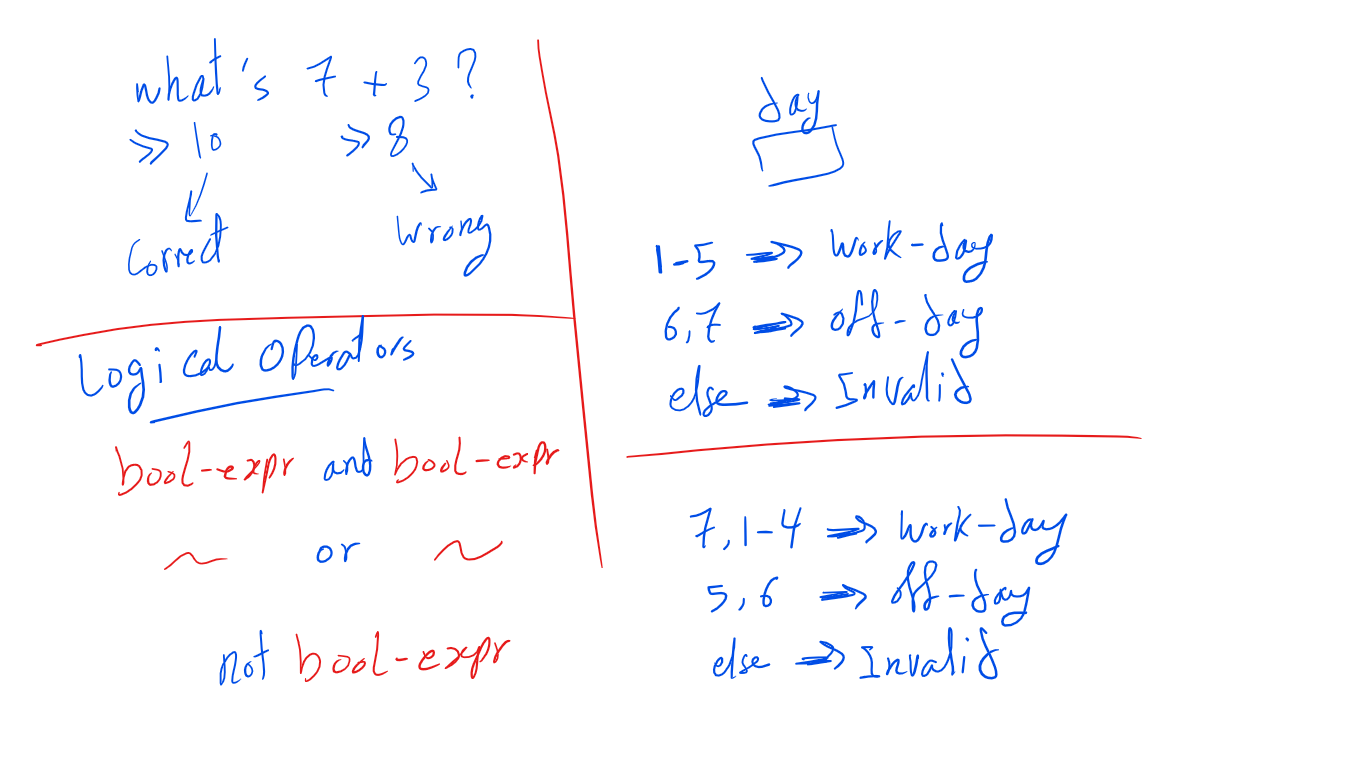 what's 7 + 3 ?
>> 10 >> 8
Correct wrong
Logical Operators
bool-expr and bool-expr
~ or ~
not bool-expr
day
1-5 => work-day
6,7 => off-day
else => Invalid
7,1-4 => work-day
5,6 => off-day
else => Invalid